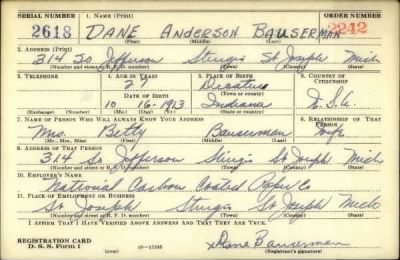 SERIAL NUMBER 1. NAME (Print) ORDER NUMBER
2618 DANE ANDERSON BAUSERMAN 2242
(First) (Middle) (Last)
2. ADDRESS (Print)
314 So Jefferson Sturgis St Joseph Mich
(Number and street or R. F. D. number) (Town) (County) (State)
3. TELEPHONE 4. AGE IN YEARS 5. PLACE OF BIRTH 6. COUNTRY OF CITIZENSHIP
27 Decatur
DATE OF BIRTH (Town or county)
10 16-1913 Indiana U.S.A.
(Exchange) (Number) (Mo.) (Day) (Yr.) (State or country)
7. NAME OF PERSON WHO WILL ALWAYS KNOW YOUR ADDRESS 8. RELATIONSHIP OF THAT PERSON
Mrs. Betty Bauserman Wife
(Mr., Mrs., Miss) (First) (Middle) (Last)
9. ADDRESS OF THAT PERSON
314 So Jefferson Sturgis St Joseph Mich
(Number and street or R. F. D. number) (Town) (County) (State)
10. EMPLOYER'S NAME
National Carbon Coated Paper Co
11. PLACE OF EMPLOYMENT OR BUSINESS
St Joseph Sturgis St Joseph Mich
(Number and street or R. F. D. number) (Town) (County) (State)
I AFFIRM THAT I HAVE VERIFIED ABOVE ANSWERS AND THAT THEY ARE TRUE.
REGISTRATION CARD
D. S. S. Form 1 16-17105 x Dane Bauserman
(Registrant's signature)